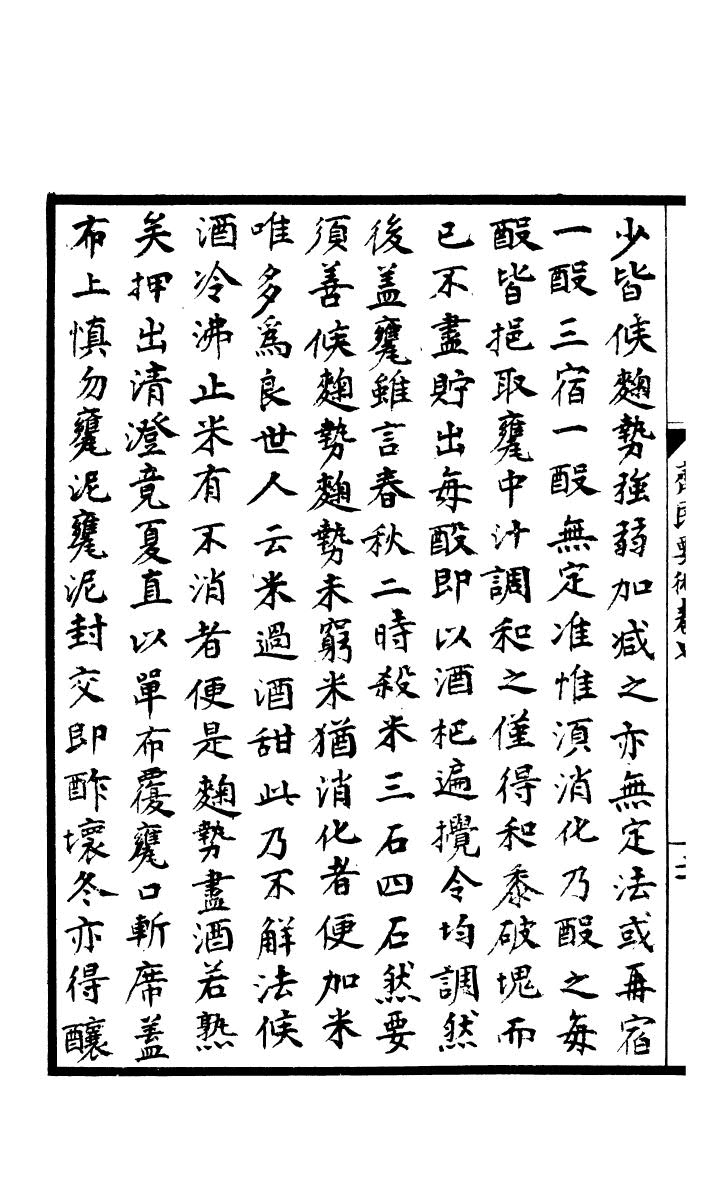 少皆候麴勢強弱加減之亦無定法或再宿
一酘三宿一酘無定准惟湏消化乃酘之每
酘皆挹取甕中汁調和之僅得和黍破塊而
已不盡貯出每酘即以酒杷遍攪令均調然
後盖甕雖言春秋二時殺米三石四石然要
須善候麴勢麴勢未窮米猶消化者便加米
唯多為良世人云米過酒甜此乃不解法候
酒冷沸止米有不消者便是麴勢盡酒若熟
矣押出清澄竟夏直以單布覆甕口斬席盖
布上慎勿甕泥甕泥封交即酢壞冬亦得釀
齊民要術卷七